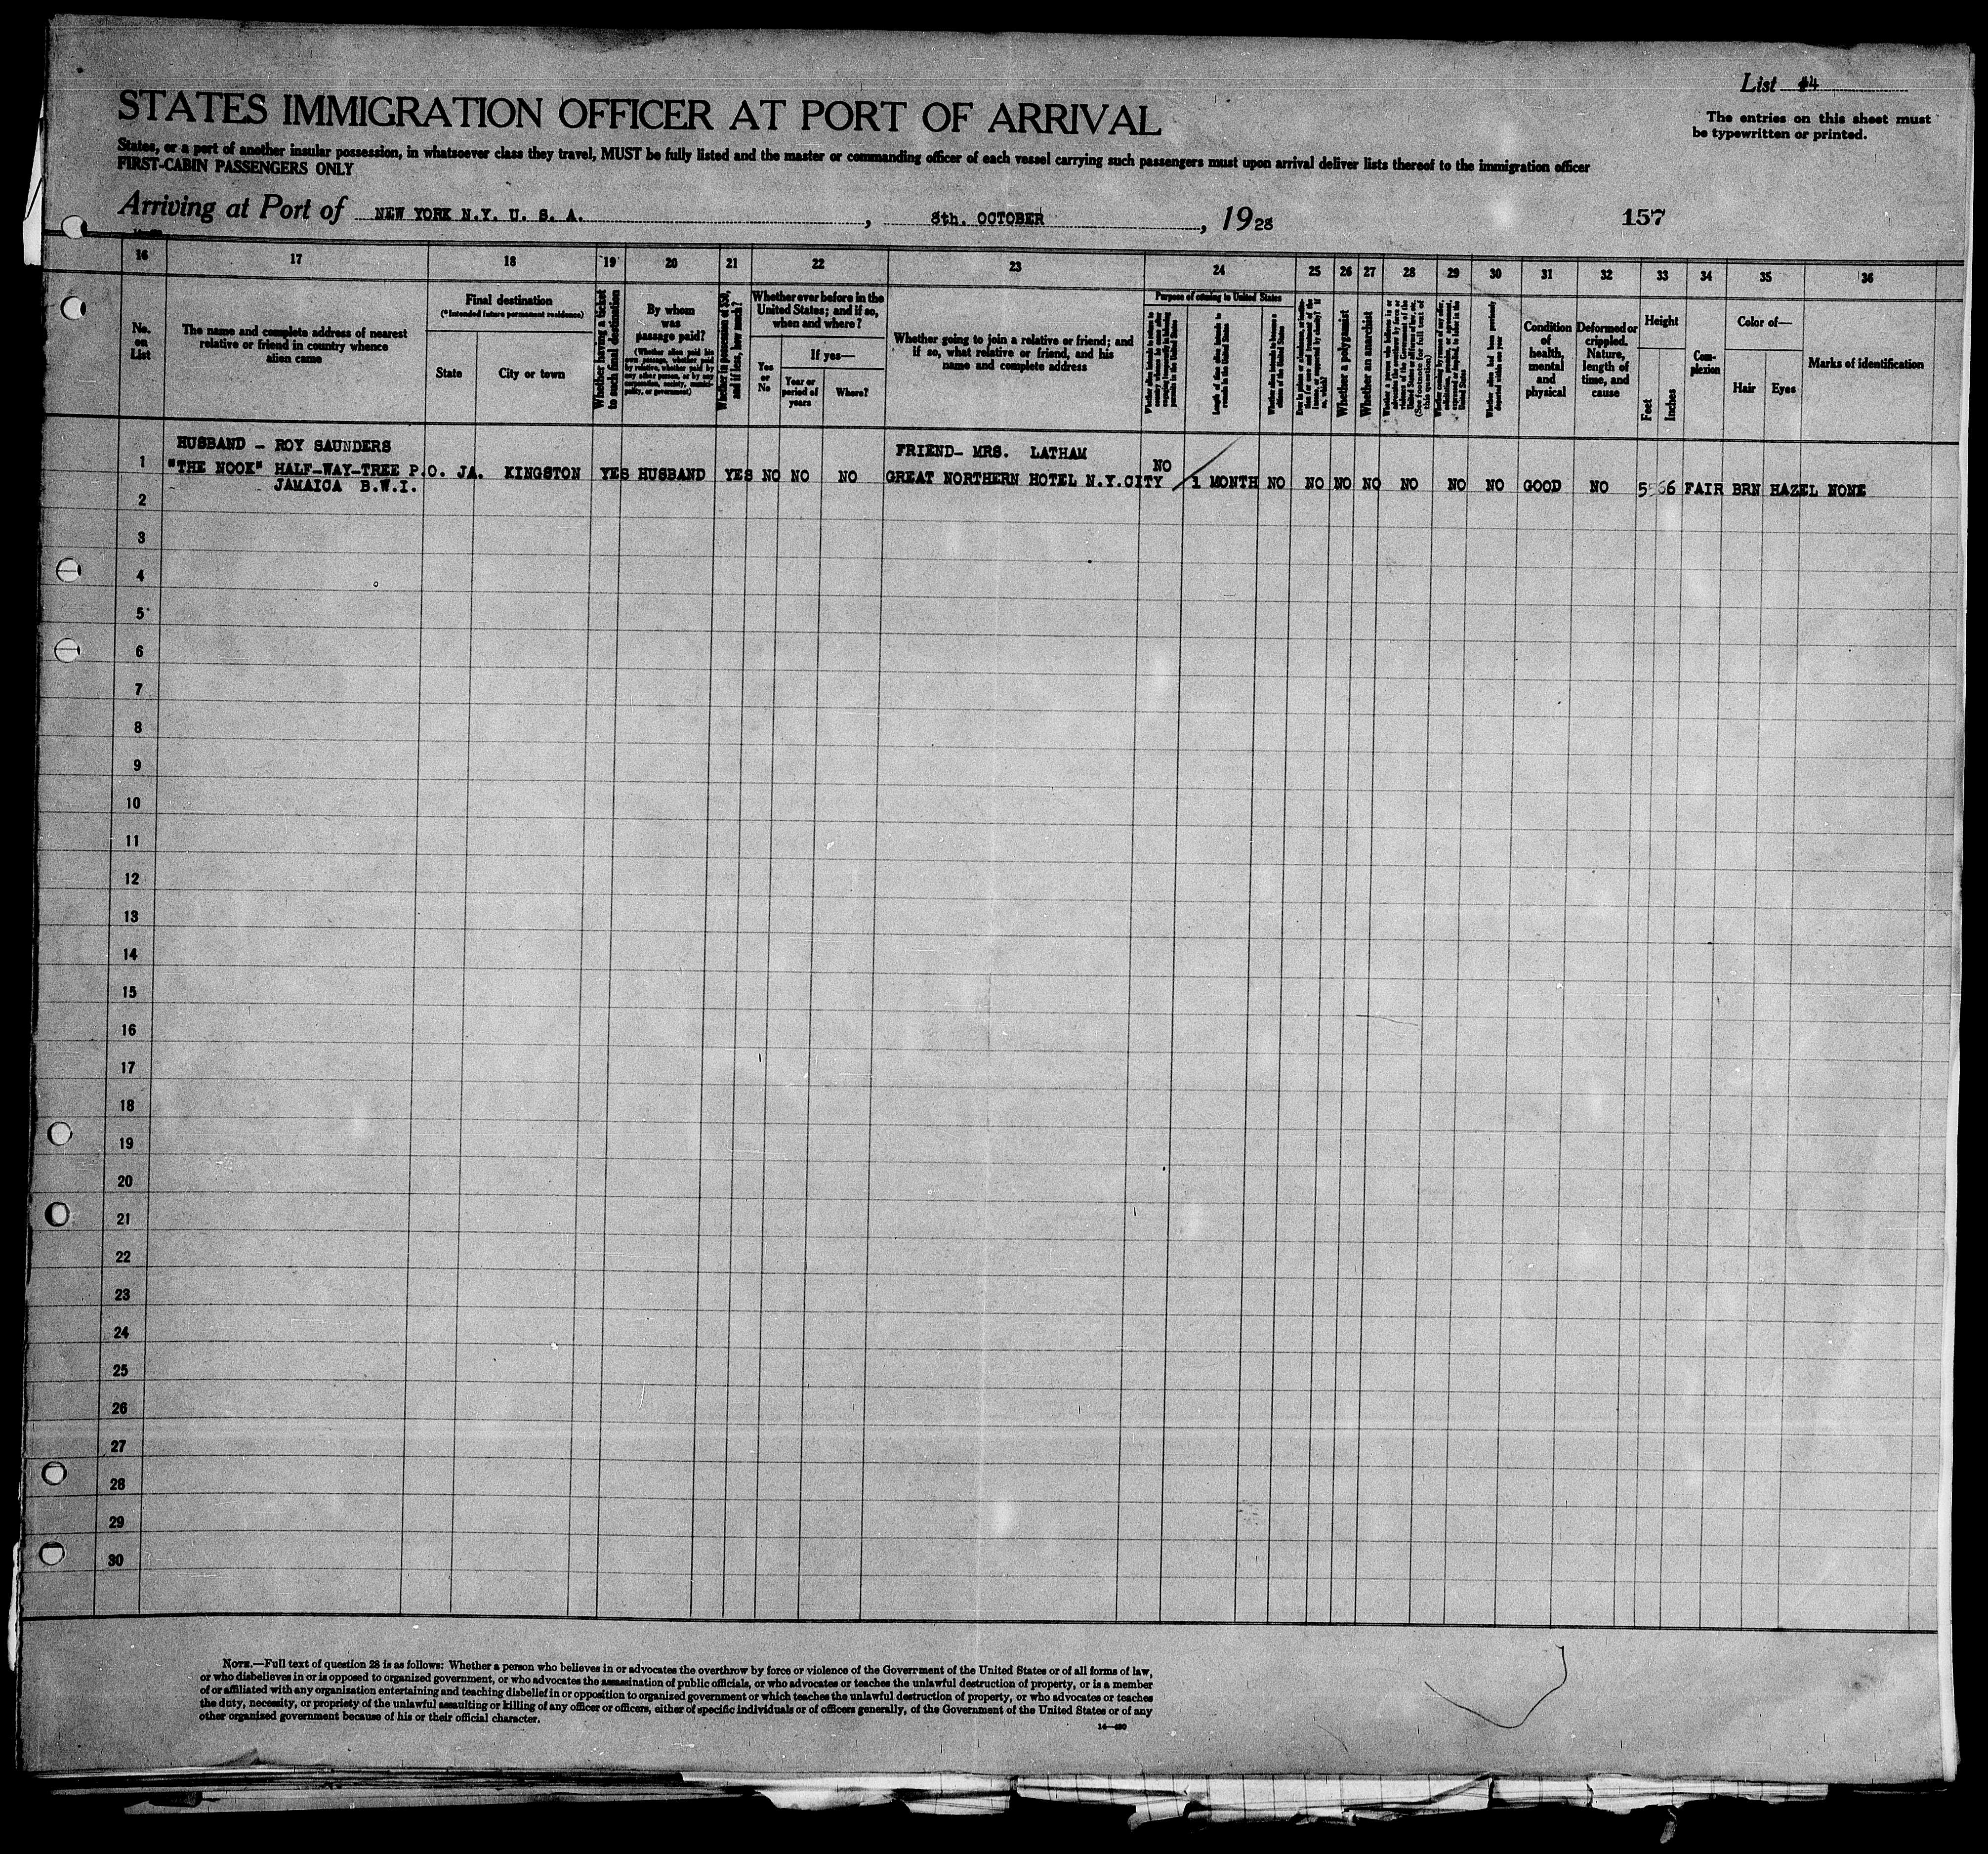 List 44
STATES IMMIGRATION OFFICER AT PORT OF ARRIVAL
The entries on this sheet must
be typewritten or printed.
States, or a port of another insular possession, in whatsoever class they travel, MUST be fully listed and the master or commanding officer of each vessel carrying such passengers must upon arrival deliver lists thereof to the immigration officer
FIRST-CABIN PASSENGERS ONLY
Arriving at Port of NEW YORK N.Y. U. S. A. , 8th. OCTOBER , 1928 157
16 17 18 19 20 21 22 23 24 25 26 27 28 29 30 31 32 33 34 35 36
No.
on
List
The name and complete address of nearest
relative or friend in country whence
alien came
Final destination
(*Intended future permanent residence)
State
City or town
Whether having a ticket
to such final destination
By whom
was
passage paid?
(Whether alien paid his
own passage, whether paid
by relative, whether paid by
any other person, or by any
corporation, society, munici-
pality, or government)
Whether in possession of $50,
and if less, how much?
Whether ever before in the
United States; and if so,
when and where?
Yes
or
No
If yes—
Year or
period of
years
Where?
Whether going to join a relative or friend; and
if so, what relative or friend, and his
name and complete address
Purpose of coming to United States
Length of time alien intends to
remain in the United States
Whether alien intends to become a
citizen of the United States
Whether a polygamist
Whether an anarchist
(See footnote for full text of
this question)
Whether alien had been previously
deported within one year
Condition
of
health,
mental
and
physical
Deformed or
crippled.
Nature,
length of
time, and
cause
Height
Feet
Inches
Com-
plexion
Color of—
Hair
Eyes
Marks of identification
HUSBAND - ROY SAUNDERS FRIEND- MRS. LATHAM
1 "THE NOOK" HALF-WAY-TREE P.O. JA. KINGSTON YES HUSBAND YES NO NO NO GREAT NORTHERN HOTEL N.Y.CITY NO 1 MONTH NO NO NO NO NO NO NO GOOD NO 5 66 FAIR BRN HAZEL NONE
JAMAICA B.W.I.
2
3
4
5
6
7
8
9
10
11
12
13
14
15
16
17
18
19
20
21
22
23
24
25
26
27
28
29
30
NOTE.—Full text of question 28 is as follows: Whether a person who believes in or advocates the overthrow by force or violence of the Government of the United States or of all forms of law,
or who disbelieves in or is opposed to organized government, or who advocates the assassination of public officials, or who advocates or teaches the unlawful destruction of property, or is a member
of or affiliated with any organization entertaining and teaching disbelief in or opposition to organized government or which teaches the unlawful destruction of property, or who advocates or teaches
the duty, necessity, or propriety of the unlawful assaulting or killing of any officer or officers, either of specific individuals or of officers generally, of the Government of the United States or of any
other organized government because of his or their official character.
14—430